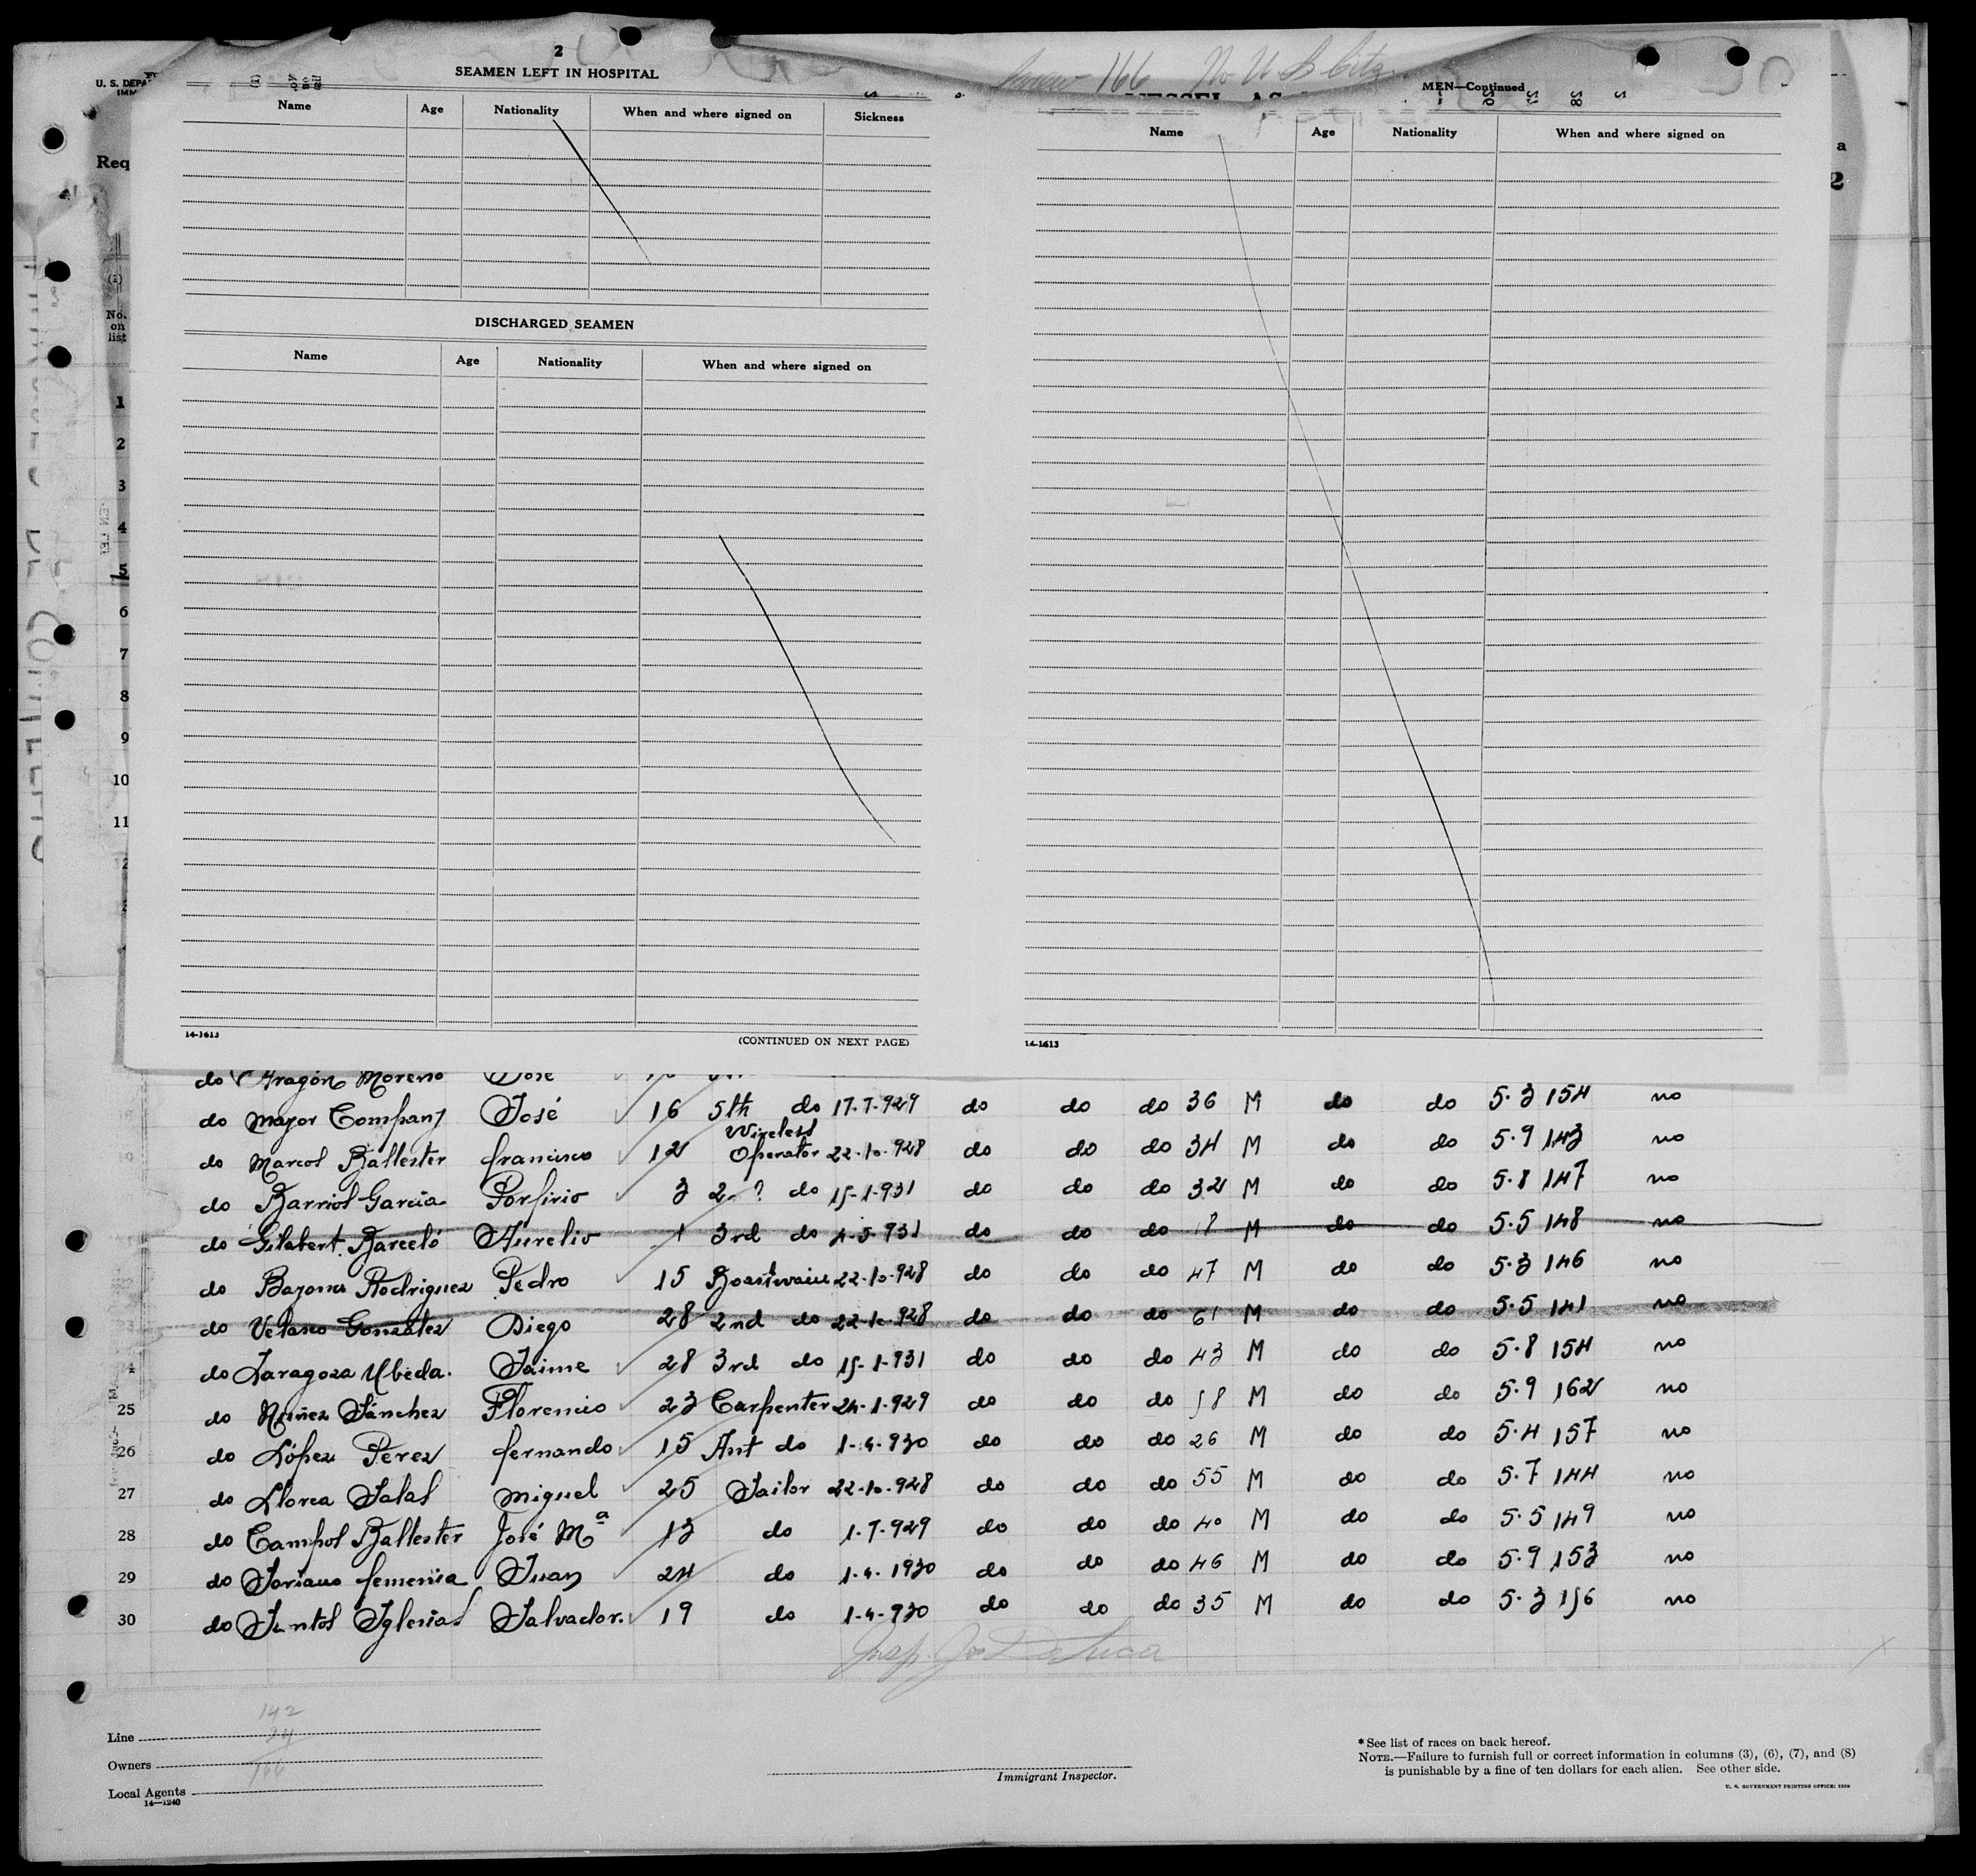 2
SEAMEN LEFT IN HOSPITAL
Name Age Nationality When and where signed on Sickness
DISCHARGED SEAMEN
Name Age Nationality When and where signed on
14-1613
(CONTINUED ON NEXT PAGE)
166 No U S Citz.
MEN—Continued
Name Age Nationality When and where signed on
14-1613
U. S. DEPA
IMM
Req
(1)
No.
on
list
1
2
3
4
5
6
7
8
9
10
11
a
2
do Aragón Moreno José
do Mayor Company José 16 5th do 17-7-929 do do do 36 M do do 5·3 154 no
do Marcos Ballester francisco 12 Wireless Operator 22-10-928 do do do 34 M do do 5·9 143 no
do Barrios García Porfirio 3 2 do 15-1-931 do do do 32 M do do 5·8 147 no
do Gilabert Barceló Aurelio 1 3rd do do do do M do do 5·5 148 no
do Bayona Rodriguez Pedro 15 22-10-928 do do do 47 M do do 5·3 146 no
do Velasco Gonzalez Diego 28 2nd do 22-10-928 do do do 61 M do do 5·5 141 no
do Zaragoza Ubeda. Jaime 28 3rd do 15-1-931 do do do 43 M do do 5·8 154 no
25 do Núñez Sánchez Florencio 23 Carpenter 24-1-929 do do do 58 M do do 5·9 162 no
26 do López Perez fernando 15 Ant do 1-4-930 do do do 26 M do do 5·4 157 no
27 do Llorca Salas Miguel 25 Sailor 22-10-928 do do do 55 M do do 5·7 144 no
28 do Campos Ballester José Mª 13 do 1-7-929 do do do 40 M do do 5·5 149 no
29 do Soriano femenia Juan 24 do 1-4-1930 do do do 46 M do do 5·9 153 no
30 do Santos Iglesias Salvador. 19 do 1-4-930 do do do 35 M do do 5·3 156 no
Insp. Jos DeLuca
142
24
166
Line
Owners
Local Agents
14—1240
Immigrant Inspector.
* See list of races on back hereof.
NOTE.—Failure to furnish full or correct information in columns (3), (6), (7), and (8)
is punishable by a fine of ten dollars for each alien. See other side.